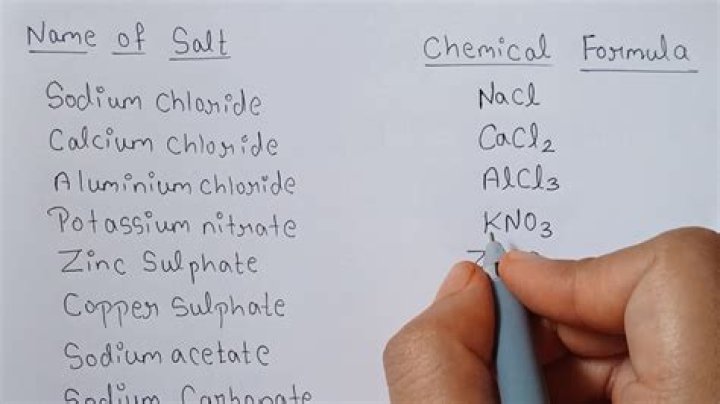 Name of Salt Chemical Formula
Sodium chloride NaCl
Calcium chloride CaCl₂
Aluminium chloride AlCl₃
Potassium nitrate KNO₃
Zinc Sulphate
Copper Sulphate
Sodium acetate
Sodium Carbonate